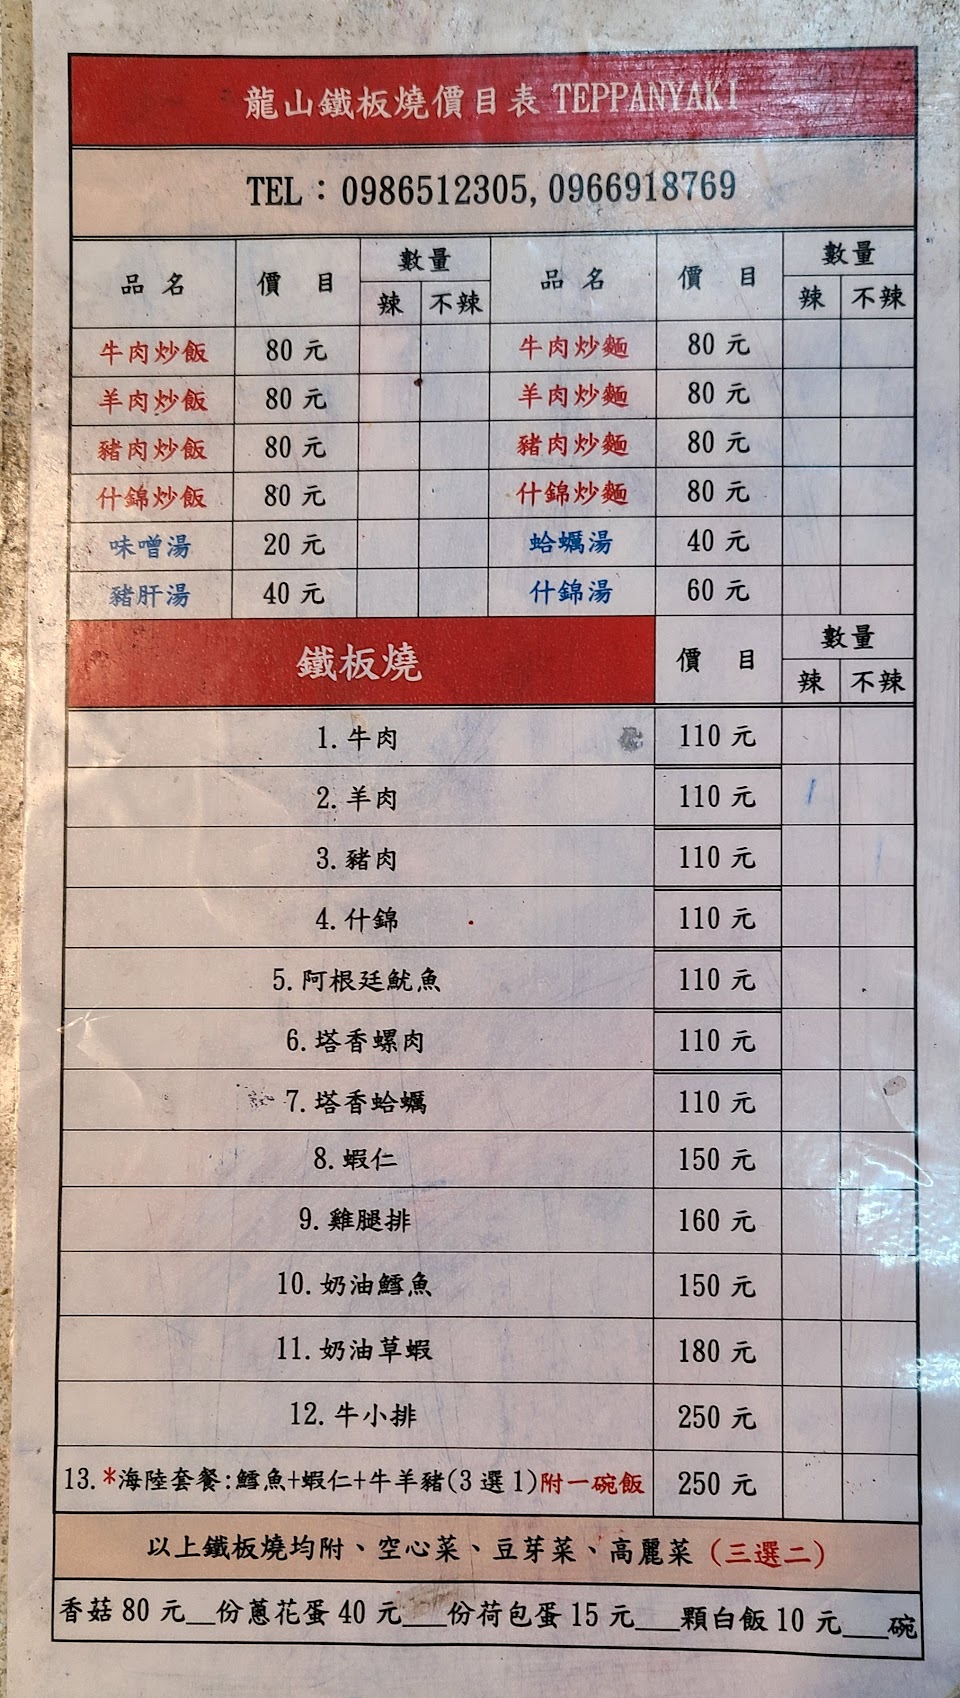 龍山鐵板燒價目表 TEPPANYAKI
TEL：0986512305, 0966918769
品名 價目 數量 品名 價目 數量
辣 不辣 辣 不辣
牛肉炒飯 80元 牛肉炒麵 80元
羊肉炒飯 80元 羊肉炒麵 80元
豬肉炒飯 80元 豬肉炒麵 80元
什錦炒飯 80元 什錦炒麵 80元
味噌湯 20元 蛤蠣湯 40元
豬肝湯 40元 什錦湯 60元
鐵板燒 價目 數量
辣 不辣
1.牛肉 110元
2.羊肉 110元
3.豬肉 110元
4.什錦 110元
5.阿根廷魷魚 110元
6.塔香螺肉 110元
7.塔香蛤蠣 110元
8.蝦仁 150元
9.雞腿排 160元
10.奶油鱈魚 150元
11.奶油草蝦 180元
12.牛小排 250元
13.*海陸套餐:鱈魚+蝦仁+牛羊豬(3選1)附一碗飯 250元
以上鐵板燒均附、空心菜、豆芽菜、高麗菜（三選二）
香菇80元__份蔥花蛋40元___份荷包蛋15元___顆白飯10元___碗